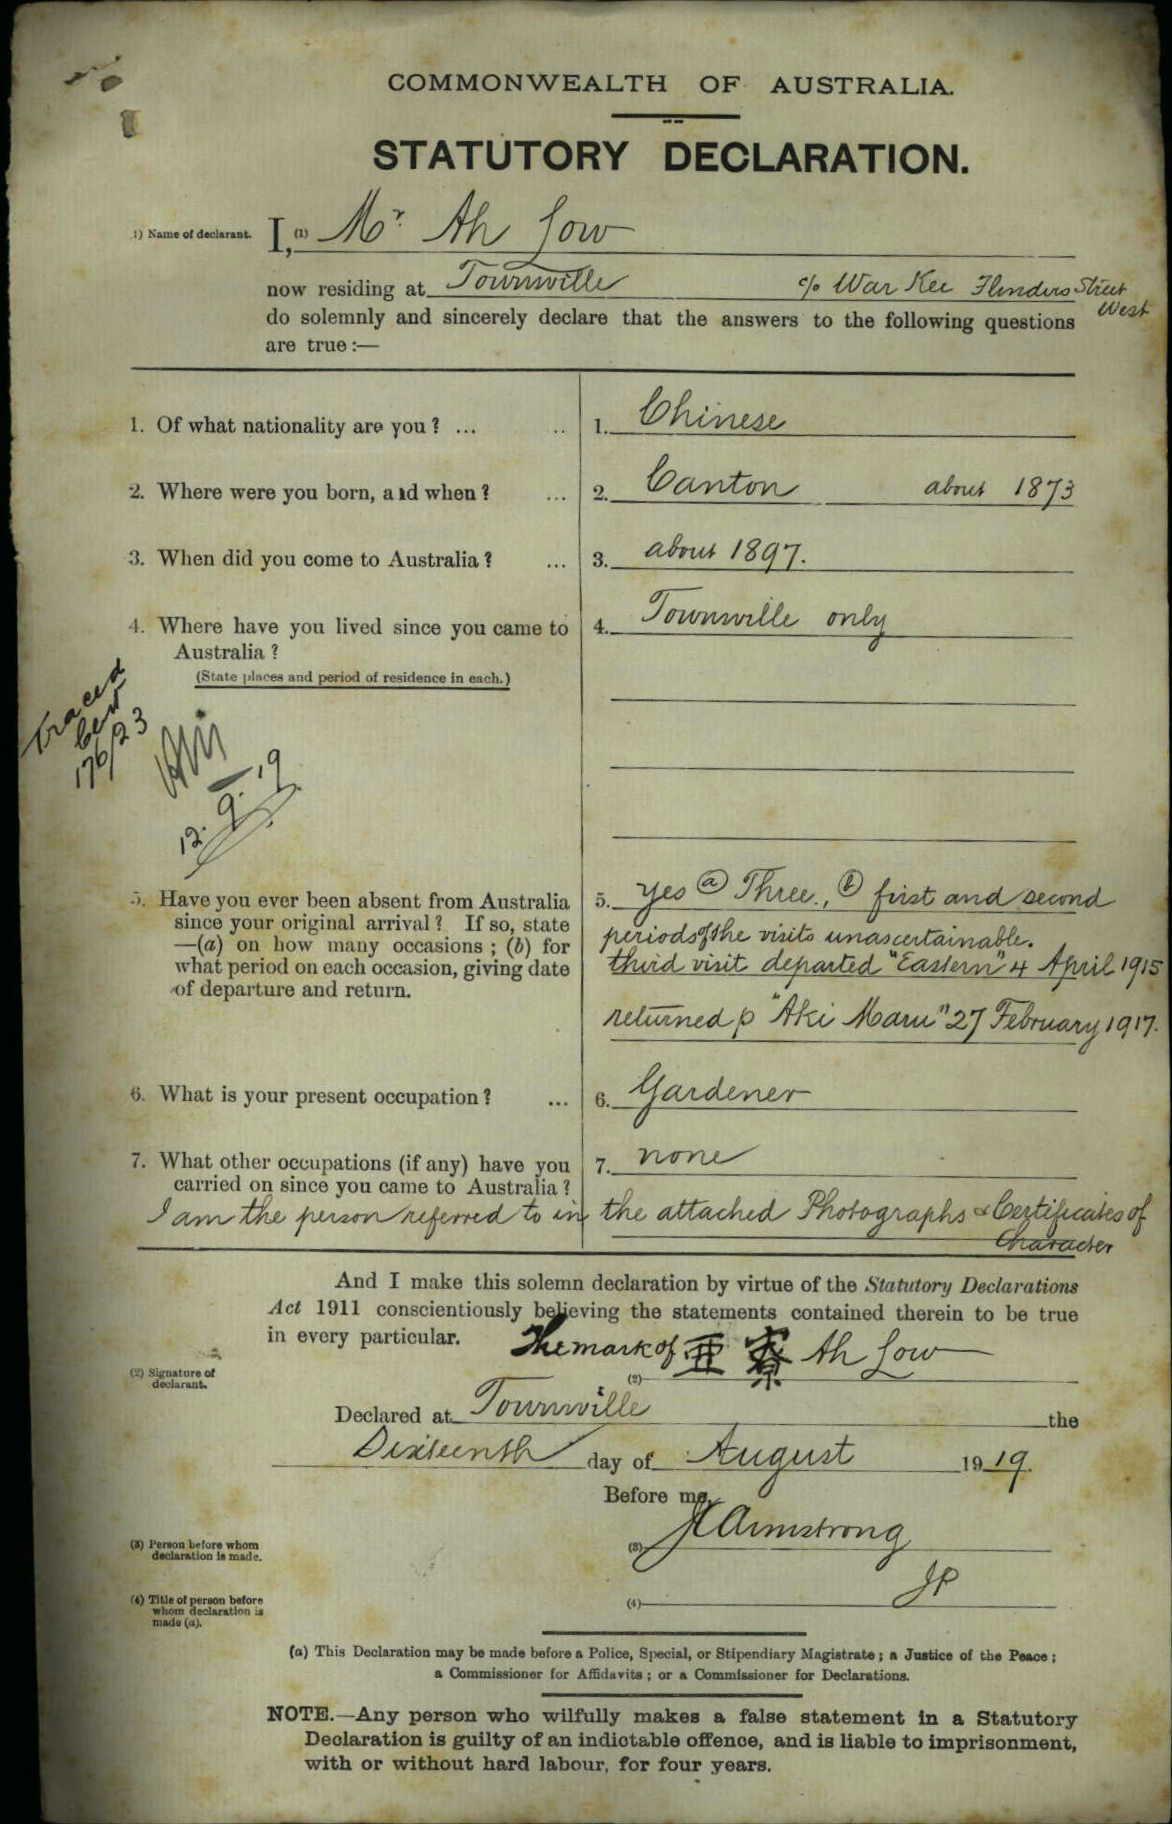 COMMONWEALTH OF AUSTRALIA.
STATUTORY DECLARATION.
1) Name of declarant. I, (1) Mr Ah Low
now residing at Townsville c/o War Kee Flinders Street
West
do solemnly and sincerely declare that the answers to the following questions
are true:—
1. Of what nationality are you? ... .. 1. Chinese
2. Where were you born, and when? ... 2. Canton about 1873
3. When did you come to Australia? ... 3. about 1897.
4. Where have you lived since you came to 4. Townsville only
Australia?
(State places and period of residence in each.)
Traced
Cert
176/23
12.9.19
5. Have you ever been absent from Australia 5. Yes (a) Three., (b) first and second
since your original arrival? If so, state periods of the visits unascertainable.
—(a) on how many occasions; (b) for third visit departed "Eastern" 4 April 1915
what period on each occasion, giving date
of departure and return. returned p "Aki Maru" 27 February 1917.
6. What is your present occupation? ... 6. Gardener
7. What other occupations (if any) have you 7. none
carried on since you came to Australia?
I am the person referred to in the attached Photographs & Certificates of
Character
And I make this solemn declaration by virtue of the Statutory Declarations
Act 1911 conscientiously believing the statements contained therein to be true
in every particular. The mark of 亜寮 Ah Low
(2) Signature of
declarant. (2)
Declared at Townsville the
Sixteenth day of August 1919.
Before me,
(3) Person before whom
declaration is made. (3) Armstrong
(4) Title of person before
whom declaration is
made (a). (4) JP
(a) This Declaration may be made before a Police, Special, or Stipendiary Magistrate; a Justice of the Peace;
a Commissioner for Affidavits; or a Commissioner for Declarations.
NOTE.—Any person who wilfully makes a false statement in a Statutory
Declaration is guilty of an indictable offence, and is liable to imprisonment,
with or without hard labour, for four years.